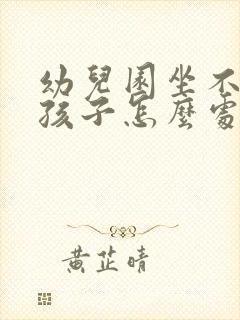 幼兒園坐不
孩子怎麼處
黃芷晴